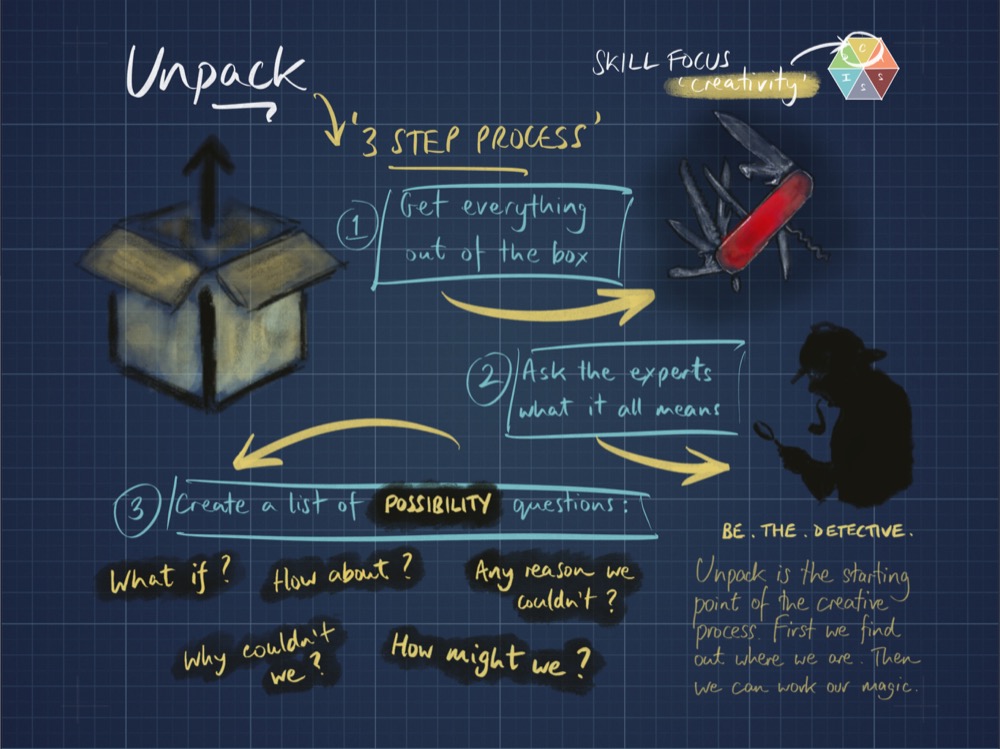 Unpack
SKILL FOCUS
'creativity'
C
I
S
S
'3 STEP PROCESS'
1
Get everything
out of the box
2
Ask the experts
what it all means
3
Create a list of POSSIBILITY questions:
What if?
How about?
Any reason we
couldn't?
Why couldn't
we?
How might we?
BE. THE. DETECTIVE.
Unpack is the starting
point of the creative
process. First we find
out where we are. Then
we can work our magic.